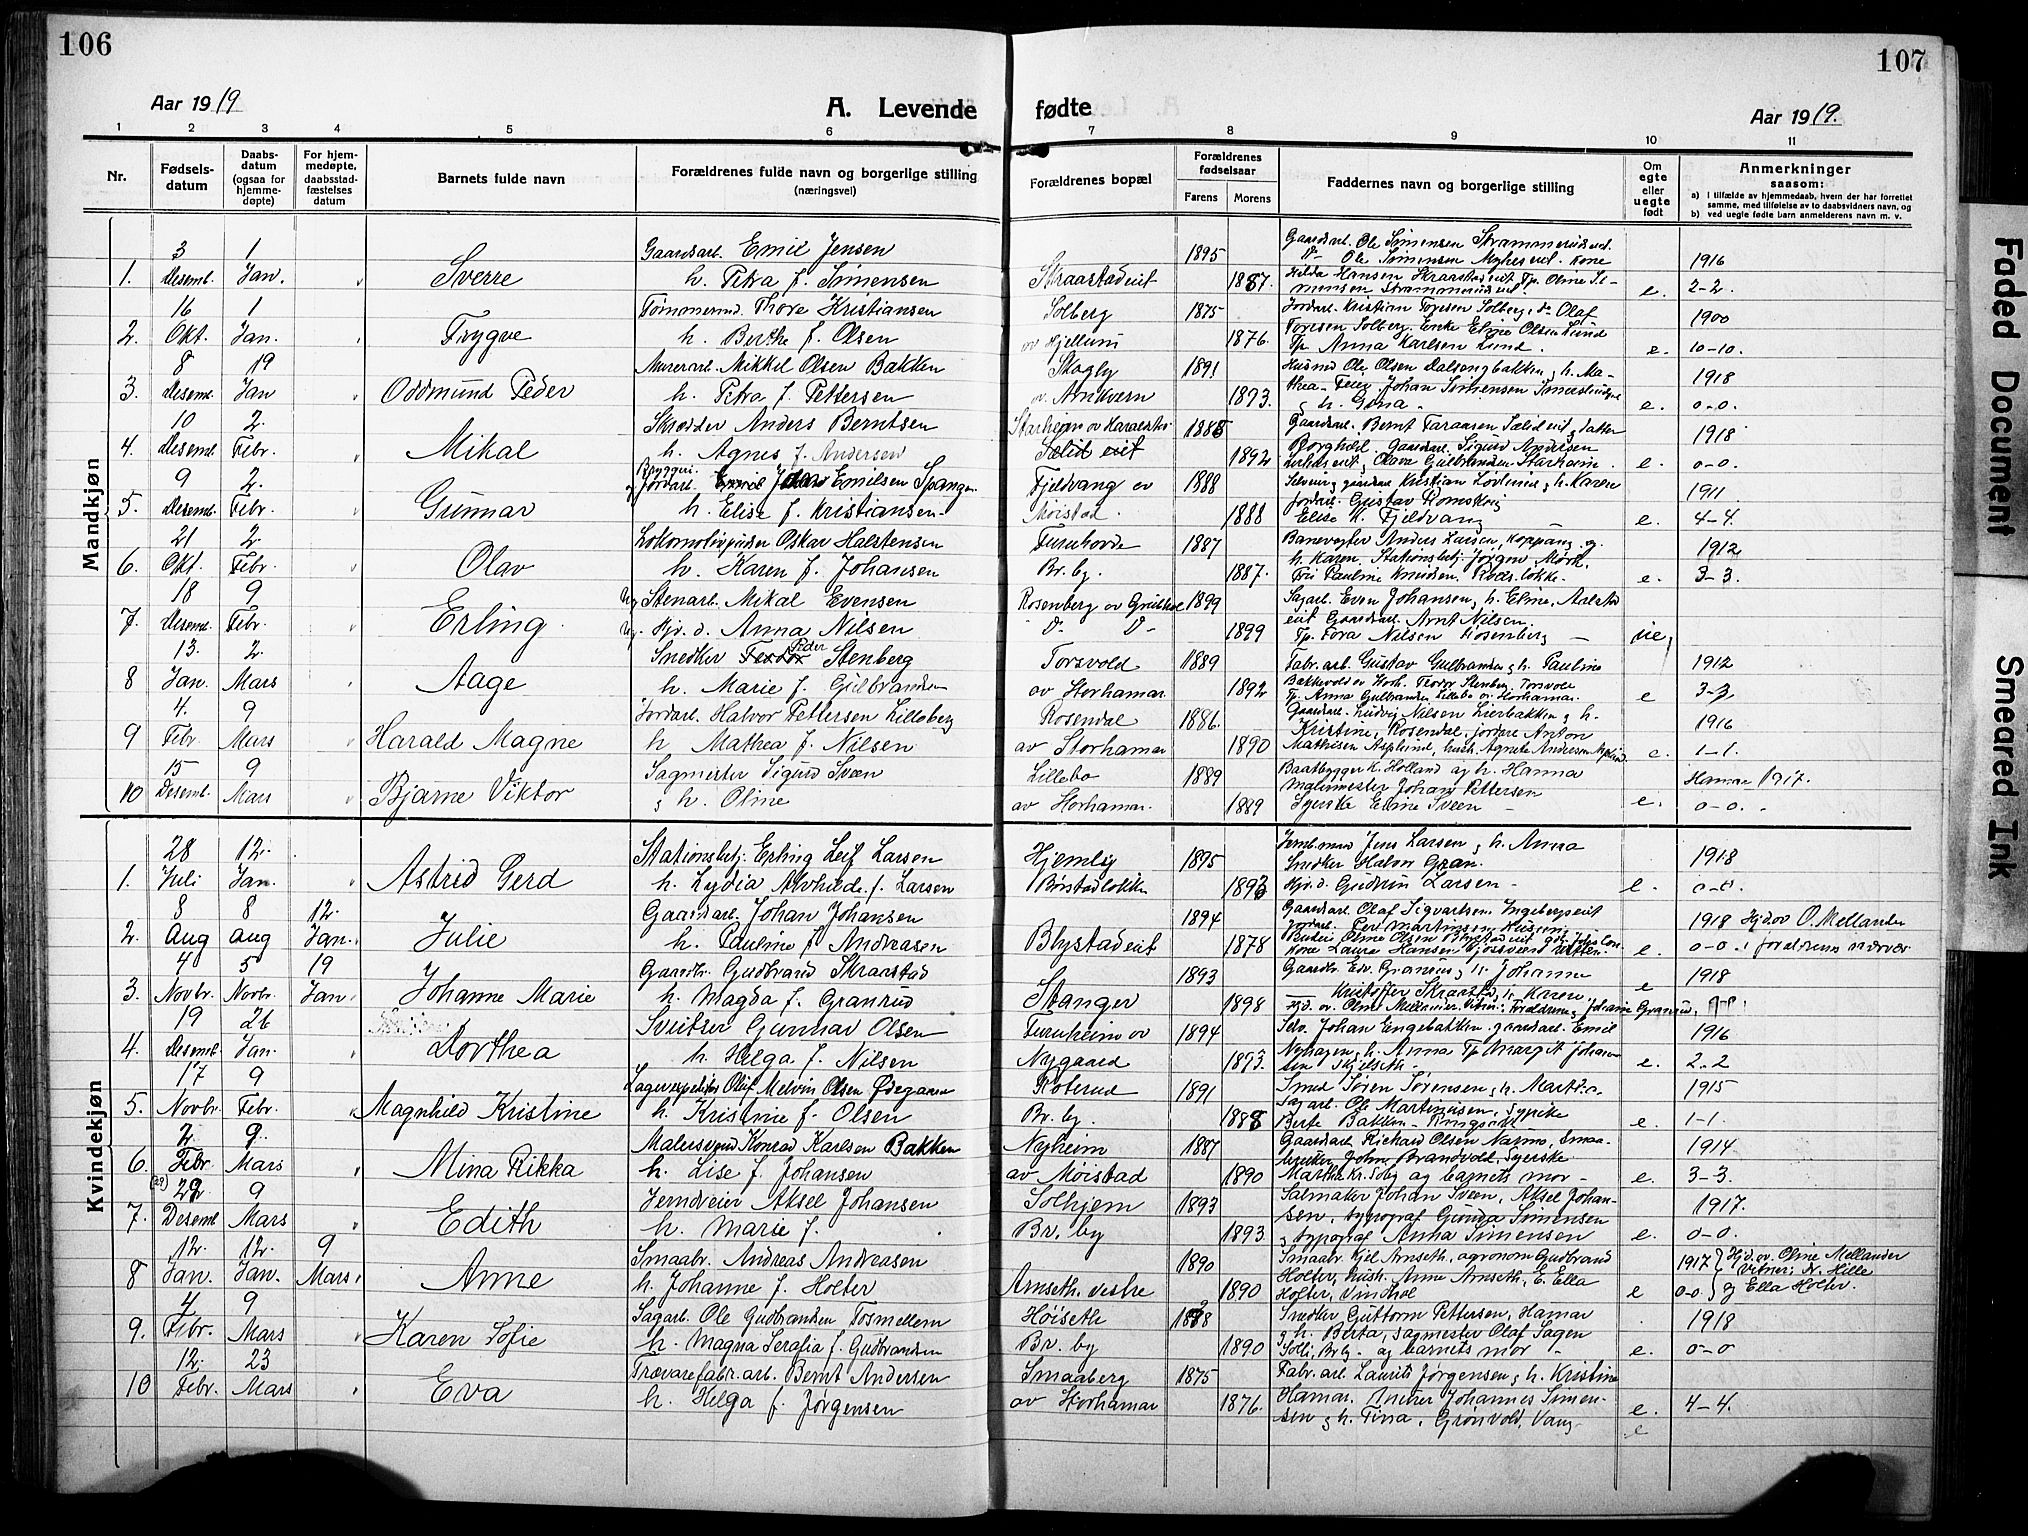 106
107
Aar 1919
A. Levende fødte
Aar 1919.
1 2 3 4 5 6 7 8 9 10 11
Nr.
Fødsels-
datum
Daabs-
datum
(ogsaa for
hjemme-
døpte)
For hjem-
medøpte,
daabsstad-
fæstelses
datum
Barnets fulde navn
Forældrenes fulde navn og borgerlige stilling
(næringsvei)
Forældrenes bopæl
Forældrenes
fødselsaar
Farens
Morens
Faddernes navn og borgerlige stilling
Om
egte
eller
uegte
født
Anmerkninger
saasom:
a) I tilfælde av hjemmedaab, hvem der har forrettet
samme, med tilføielse av to daabsvidners navn, og
b) ved uegte fødte barn anmelderens navn m. v.
Mandkjøn
3 1 Gaardsarb. Emil Jensen 1895 Gaardsarb. Ole Simensen 1916
1. Desemb. Jan. Sverre h. Petra f. Simensen Skraastadeit 1887. Hilda Hansen e. 2-2.
16 1 Tømmermd. Thore Kristiansen Solberg 1875 Jordarb. Kristian Toresen Solberg, Olaf 1900
2. Okt. Jan. Trygve h. Berthe f. Olsen ov Hjellum 1876. Toresen Solberg, Enke Eline Olsen Lund
Tp. Anna Karlsen Lund. e. 10-10.
8 19 Murerarb. Mikkel Olsen Bakken Skogly 1891 Husmd Ole Olsen Dalsengbakken, h. Ma- 1918
3. Desemb. Jan Oddmund Peder h. Petra f. Pettersen o. Arnkvern 1893. thea - Johan Simensen
h. Gina - e. 0-0.
10 2. Skrædder Anders Berntsen Starheim 1885 Gaardsarb. Bernt 1918
4. Desemb. Febr. Mikal h. Agnes f. Andersen Sælid eit 1892 Borghild, Gaardsarb. Sigurd Andersen
Olava Gulbrandsen Starheim. e. 0-0.
9 2. Bryggeri- og Jordarb. Emilsen Spangen Fjeldvang ov 1888 Kristian h. Karen 1911
5. Desemb. Febr. Gunnar h. Elise f. Kristiansen- Moistad. 1888 Jordarb. Gustav Romskog
Elise K. Fjeldvang e. 4-4.
21 2. Lokomotivpudser Oskar Halstensen Furuhovde 1887 Banevogter Anders Larsen, Koppang, og 1912
6. Okt. Febr. Olav h. Karen f. Johansen Br. by. 1887. h. Karen. Stationsbetj. Jørgen Mork,
Frk Pauline Knudsen, e. 3-3.
18 9 Ug. Stenarb. Mikal Evensen Rosenberg ov 1899 Sagarb. Even Johansen, h. Eline, Aalstad
7. Desemb. Febr. Erling. Ug. Hjv. d. Anna Nilsen 1899 eit Gaardsarb. Arnt Nilsen,
Tp. Tora Nilsen Rosenberg - ue,
13. 2. Snedker Peder Stenberg Torsvold 1889 Fabr. arb. Gustav Gulbrandsen, h. Pauline 1912
8 Jan. Mars Aage h. Marie f. Gulbrandsen ov Storhamar 1892 Teodor Stenberg, Torsvold
Tp. Anna Gulbrandsen Lillebo ov Storhamar. e 3-3.
4. 9 Jordarb. Halvor Pettersen Lilleberg Rosendal 1886. Gaardsarb. Ludvig Nilsen Lierbakken, h. 1916
9 Febr. Mars Harald Magne h Mathea f. Nilsen av Storhamar 1890 Kristine, Rosendal, Anton
Mathisen Asplund, Agnete Andersen e. 1-1.
15 9 Sagmester Sigurd Sveen Lillebo 1889 Baatbygger K. Holland og h. Hanna Hamar 1917.
10 Desemb. Mars Bjarne Viktor h. Oline av Storhamar. 1889 Malermester Johan Pettersen
Syerske Eline Sveen - e. 0-0.
Kvindekjøn
28 12. Stationsbetj. Erling Leif Larsen Hjemly 1895 Jernb.mand Jens Larsen, h. Anna 1918
1. Juli Jan. Astrid Gerd h. Lydia Alvhilde f. Larsen 1893 Snedker Halvor Gran.
Hjv. d. Gudrun Larsen - e. 0-0.
8 8 12. Gaardsarb. Johan Johansen 1894 Gaardsarb. Olaf Sigvartsen, 1918 Hjd. ov O. Mellander
2. Aug Aug Jan. Julie h. Pauline f. Andreasen Blystadeit 1878 e. 0-0. i foraldrenes nærvær
4 5 19 Gaardbr. Gudbrand Skraastad 1893 Gaardbr. Edv. Granrud, h. Johanne 1918
3. Novbr. Novbr. Jan. Johanne Marie h. Magda f. Granrud Stanger 1898 Kristoffer Skraastad, h. Karen. e
Hjd. ov. Oline Mellander. Johanne Granrud,
19 26 Sveitser Gunnar Olsen Furuheim ov 1894 Johan Engebakken, gaardsarb. Emil 1916
4. Desemb. Jan. Dorthea h. Helga f. Nilsen Nygaard 1893. Nyhagen, h. Anna Tp. Margit Johan-
sen Skjelseth - e. 2-2
17 9 Lagerexpeditør Oluf Melvin Olsen Ødegaard Roterud 1891 Smed Søren Sørensen, h. Martha. 1915
5. Novbr. Febr. Magnhild Kristine h. Kristine f. Olsen Br. by. 1888 Sagarb. Ole Martinusen, Syerske
Berte Bakken - e. 1-1.
2. 9. Malersvend Konrad Karlsen Bakken Nyheim 1887 Gaardsarb. Rickard Olsen 1914
6. Febr. Mars Mina Rikka h. Lise f. Johansen av Moistad 1890 John Brandvold, Syerske
Martha og barnets mor - e. 3-3.
29 9 Jerndreier Aksel Johansen Solhjem 1893 Salmaker Johan Sveen, Aksel Johan- 1917.
7. Desemb Mars Edith h. Marie f. Br. by 1893. sen, typograf Gunda Simensen
typograf Anna Simensen e. 0-0.
12. 12. 9 Smaabr. Andreas Andreasen 1890 Smaabr. Kjel Arnseth, agronom Gudbrand 1917 Hjd. ov. Oline Mellander
8 Jan. Jan. Mars. Anne h. Johanne f. Holter Arnseth. vestre 1890 Holter, Anne Arnseth, E. Ella Vitner: N. Hille
Holter, Vinthol e 0-0. og Ella Holter.
4 9 Sagarb. Ole Gudbrandsen Tosmellem Høiseth 1888 Snedker Guttorm Pettersen, Hamar 1918
9. Febr. Mars Karen Sofie h. Magna Serafia f. Gudbrandsen Br. by 1890 h. Berta, sagmester Olaf Sagen
Solli, Br by - og barnets mor - e. 0-0
12. 23 Trævarefabr. arb. Bernt Andersen Smaaberg 1875 Fabr. arb. Laurits Jørgensen, h. Kristine
10 Febr. Mars Eva h. Helga f. Jørgensen ov Storhamar 1876. Hamar. Johannes Simen- e. 4-4.
sen, h. Tina, Grønvold, Vang- e
Faded Document
Smeared Ink